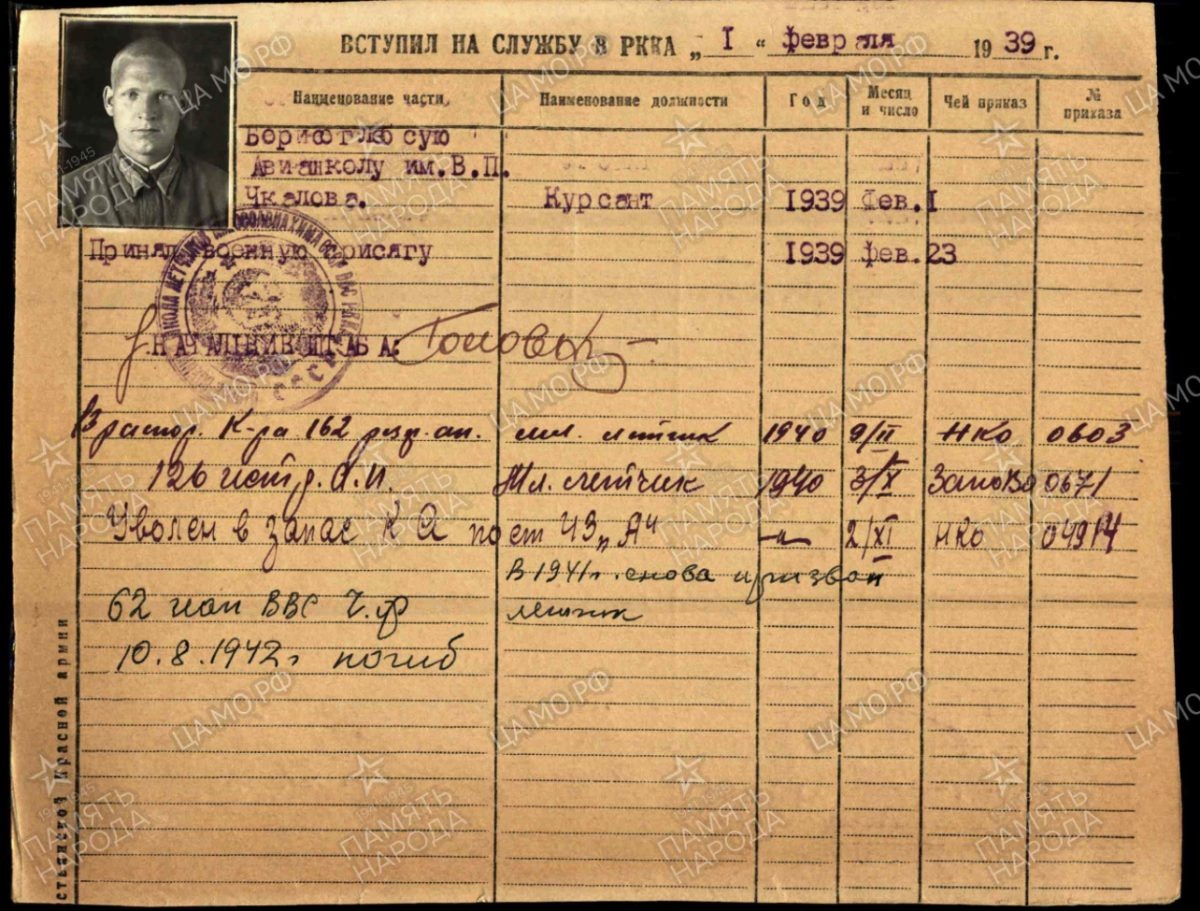 ВСТУПИЛ НА СЛУЖБУ В РККА „ I " февраля 1939 г.
Наименование части Наименование должности Год Месяц и число Чей приказ № приказа
Борисоглебсую
Авиашколу им.В.П.
Чкалова. Курсант 1939 Фев.I
Принял военную присягу 1939 фев.23
НАЧАЛЬНИК ШТАБА:
В распор. К-ра 162 рез. ап. мл. летчик 1940 9/II НКО 0603
126 ист. Мл. летчик 1940 3/X ЗапОВО 0671
Уволен в запас КА по ст 43 „А" -"- 2/XI НКО 04914
В 1941 г. снова призван
62 иап ВВС Ч.Ф летчик
10.8.1942г погиб
Красной армии
СССР
ЦАМО.РФ
1941-1945
ПАМЯТЬ
НАРОДА